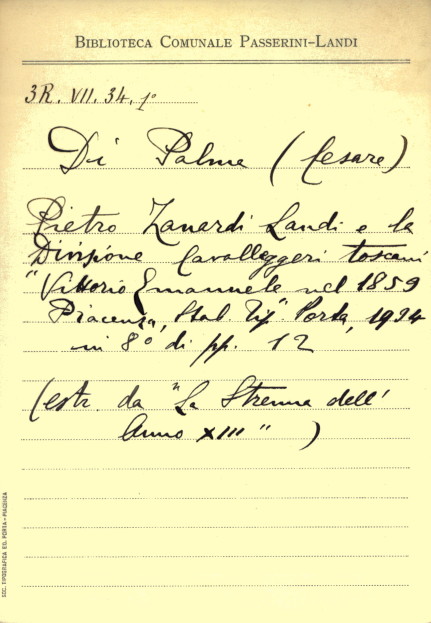 BIBLIOTECA COMUNALE PASSERINI-LANDI
3R. VII. 34. 1º
Di Palma (Cesare)
Pietro Zanardi Landi e la
Divisione Cavalleggeri toscani
"Vittorio Emanuele nel 1859
Piacenza, Stab. Tip. Porta, 1934
in 8º di pp. 12
(estr. da "La Strenna dell'
Anno XIII")
SOC. TIPOGRAFICA ED. PORTA - PIACENZA